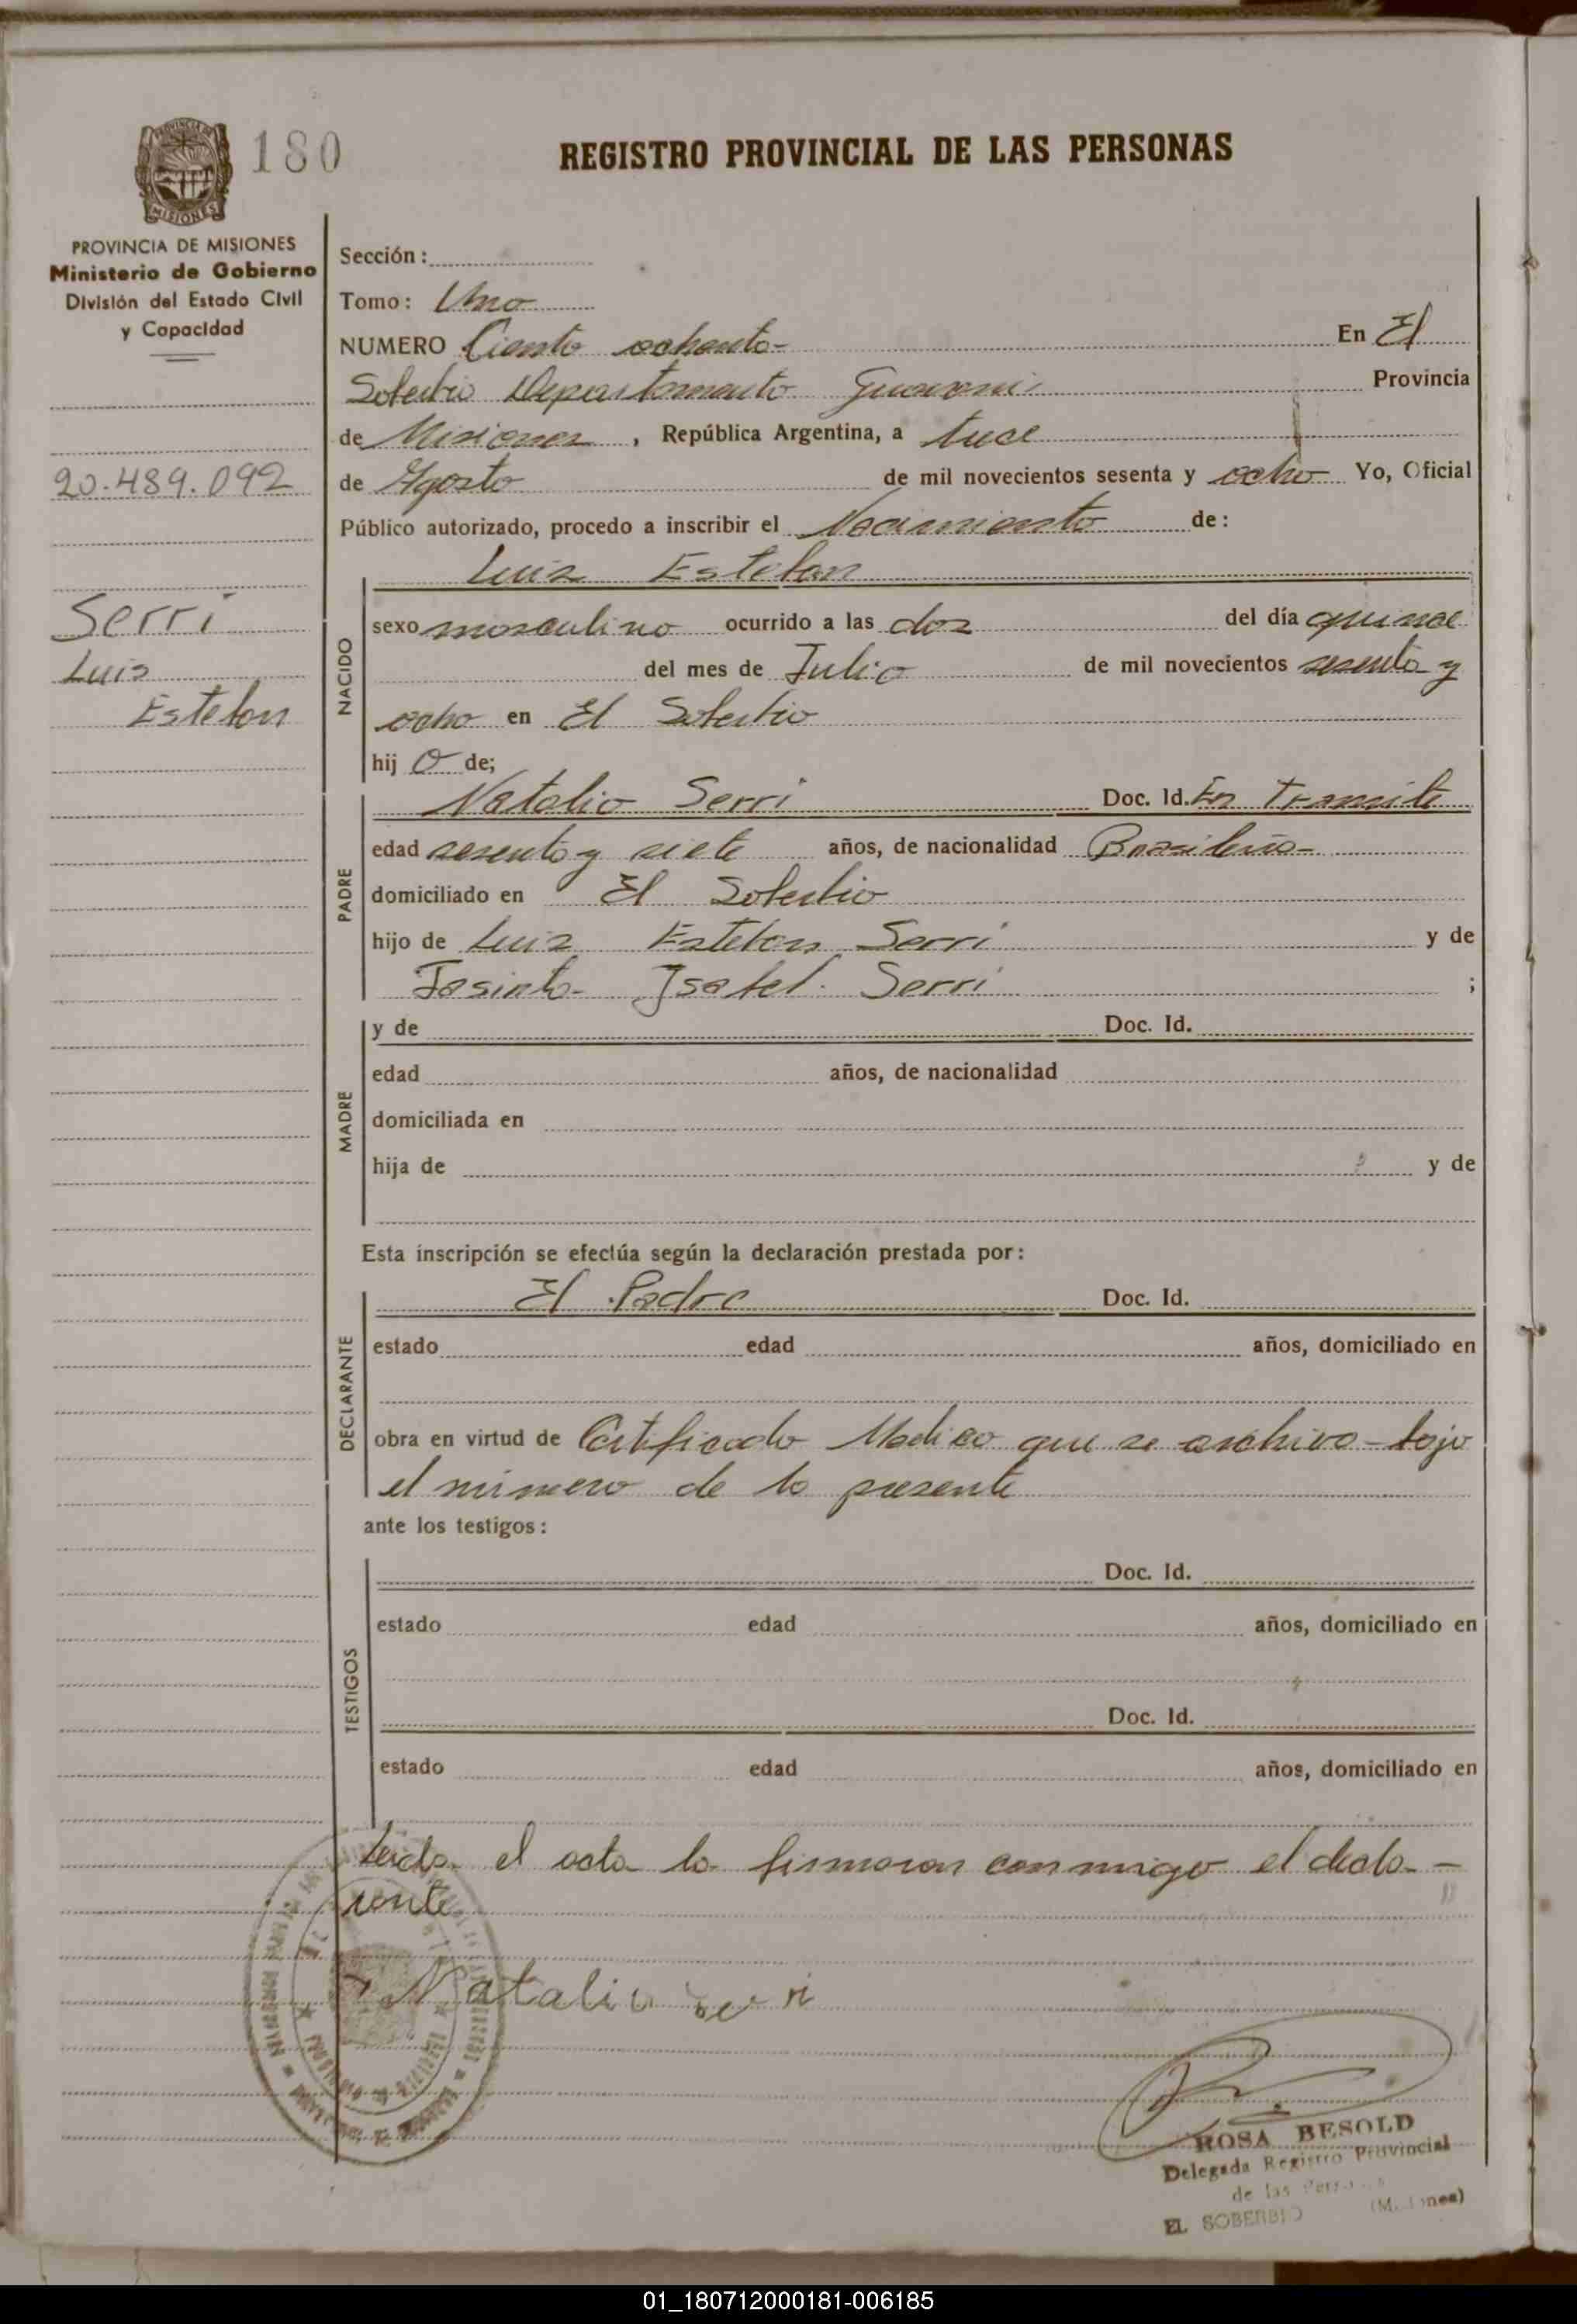 180
REGISTRO PROVINCIAL DE LAS PERSONAS
PROVINCIA DE MISIONES
Ministerio de Gobierno
División del Estado Civil
y Capacidad
20.489.092
Serri
Luis
Esteban
Sección:
Tomo: Uno
NUMERO Ciento ochenta- En El
Soberbio Departamento Guarani Provincia
de Misiones, República Argentina, a trece
de Agosto de mil novecientos sesenta y ocho Yo, Oficial
Público autorizado, procedo a inscribir el Nacimiento de:
Luis Esteban
NACIDO
sexo masculino ocurrido a las dos del día quince
del mes de Julio de mil novecientos sesenta y
ocho en El Soberbio
hijo de;
PADRE
Natalio Serri Doc. Id. En Tramite
edad sesenta y siete años, de nacionalidad Brasileña-
domiciliado en El Soberbio
hijo de Luis Esteban Serri y de
Jasinta Isabel Serri ;
MADRE
y de Doc. Id.
edad años, de nacionalidad
domiciliada en
hija de y de
Esta inscripción se efectúa según la declaración prestada por:
DECLARANTE
El Padre Doc. Id.
estado edad años, domiciliado en
obra en virtud de Certificado Medico que se archiva bajo
el número de la presente
ante los testigos:
TESTIGOS
Doc. Id.
estado edad años, domiciliado en
Doc. Id.
estado edad años, domiciliado en
Leida el acta la firmaran conmigo el decla-
rante
Natalio Serri
ROSA BESOLD
Delegada Registro Provincial
de las
EL SOBERBIO (Misiones)
01_180712000181-006185